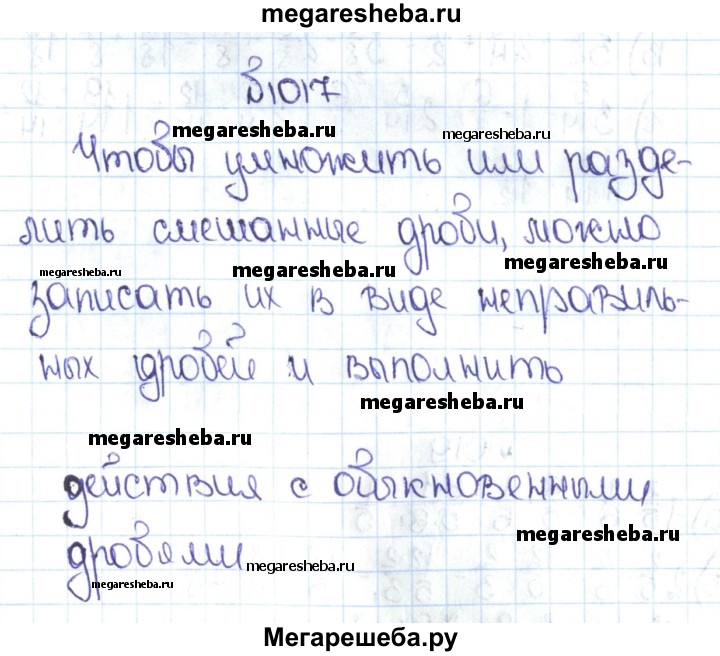 megaresheba.ru
№1017
megaresheba.ru megaresheba.ru
Чтобы умножить или разде-
лить смешанные дроби, можно
megaresheba.ru megaresheba.ru megaresheba.ru
записать их в виде неправиль-
ных дробей и выполнить
megaresheba.ru
megaresheba.ru
действия с обыкновенными
megaresheba.ru
дробями megaresheba.ru
megaresheba.ru
Мегарешеба.ру